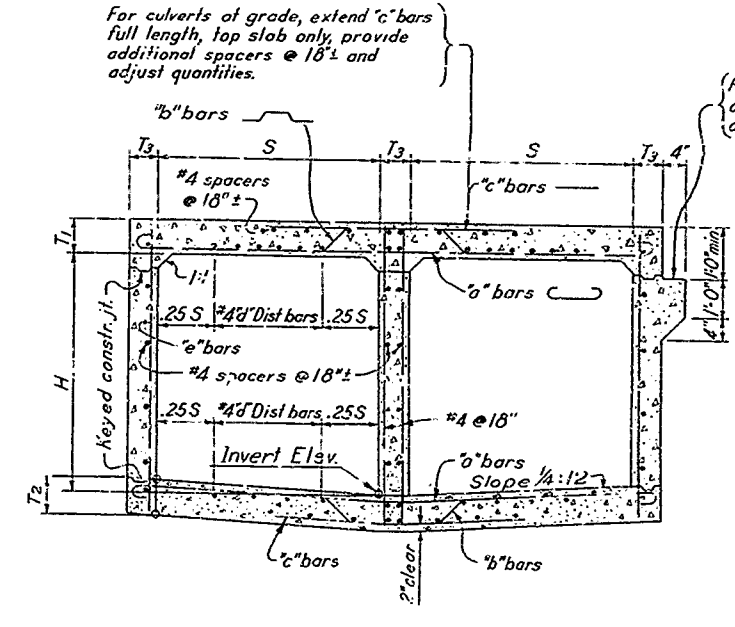 For culverts at grade, extend "c" bars
full length, top slab only, provide
additional spacers @ 18"± and
adjust quantities.
"b" bars
T3 S T3 S T3 4"
#4 spacers
@ 18"±
"c" bars
T1
1:1
"a" bars
1'0" min.
1'-0"
4"
.25 S #4"d" Dist bars .25 S
"e" bars
#4 spacers @ 18"±
H
Keyed constr. jt.
.25 S #4"d" Dist bars .25 S
#4 @ 18"
Invert Elev.
"a" bars
Slope 1/4:12
T2
"c" bars
"b" bars
2" clear